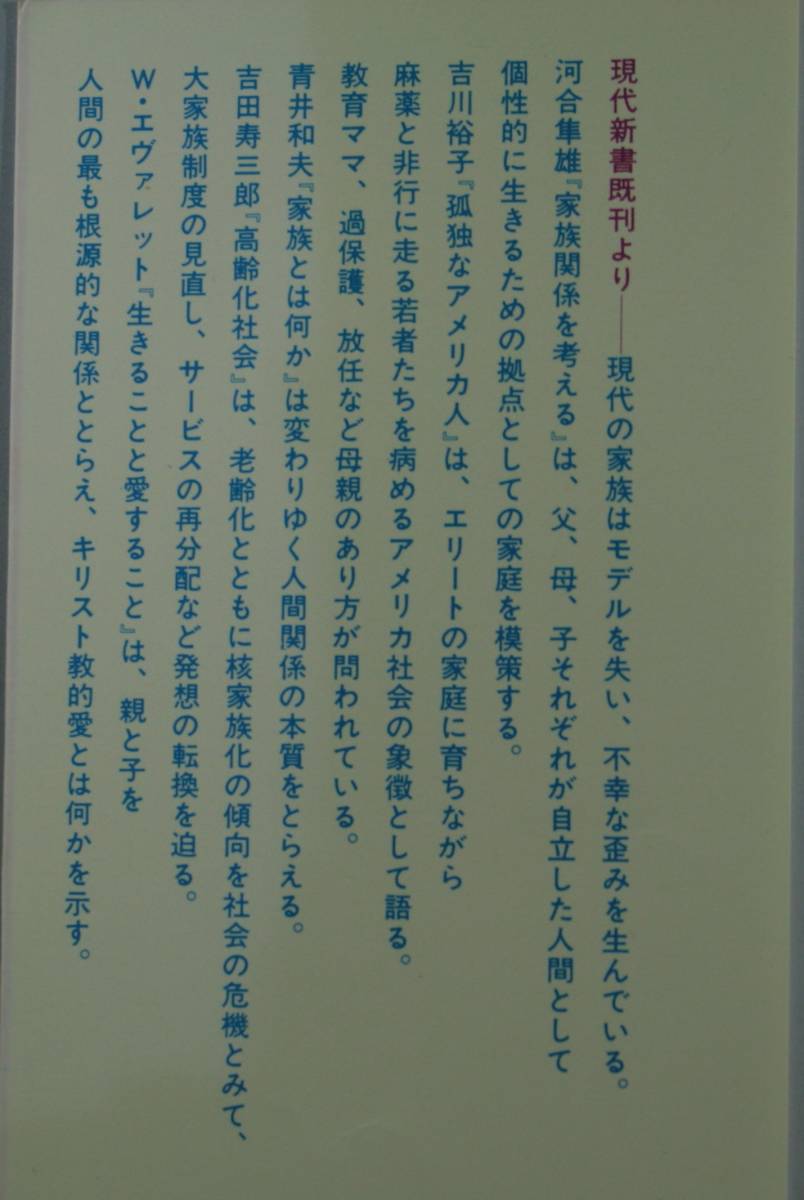 現代新書既刊より――現代の家族はモデルを失い、不幸な歪みを生んでいる。
河合隼雄『家族関係を考える』は、父、母、子それぞれが自立した人間として
個性的に生きるための拠点としての家庭を模策する。
吉川裕子『孤独なアメリカ人』は、エリートの家庭に育ちながら
麻薬と非行に走る若者たちを病めるアメリカ社会の象徴として語る。
教育ママ、過保護、放任など母親のあり方が問われている。
青井和夫『家族とは何か』は変わりゆく人間関係の本質をとらえる。
吉田寿三郎『高齢化社会』は、老齢化とともに核家族化の傾向を社会の危機とみて、
大家族制度の見直し、サービスの再分配など発想の転換を迫る。
W・エヴァレット『生きることと愛すること』は、親と子を
人間の最も根源的な関係ととらえ、キリスト教的愛とは何かを示す。